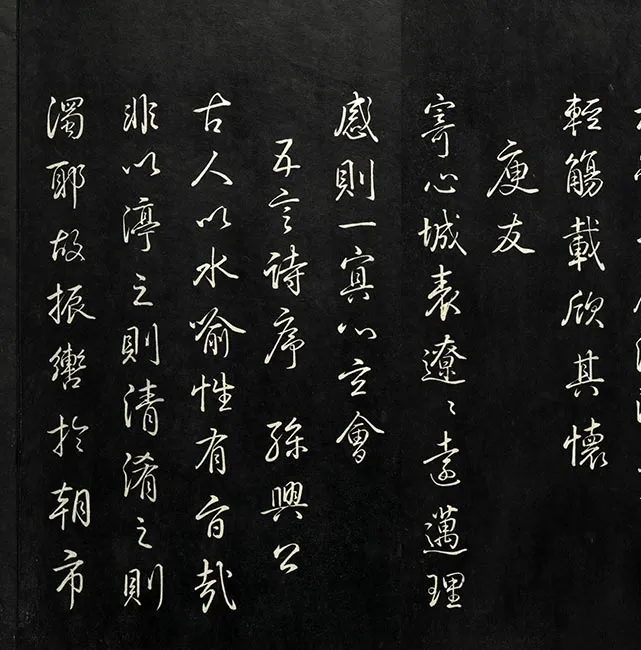 輕觴載欣其懷
庾友
寄心城表遼〻遠邁理
感則一㝠心玄會
五言詩序 孫興公
古人以水喻性有旨哉
非以渟之則清淆之則
濁耶故振轡於朝市